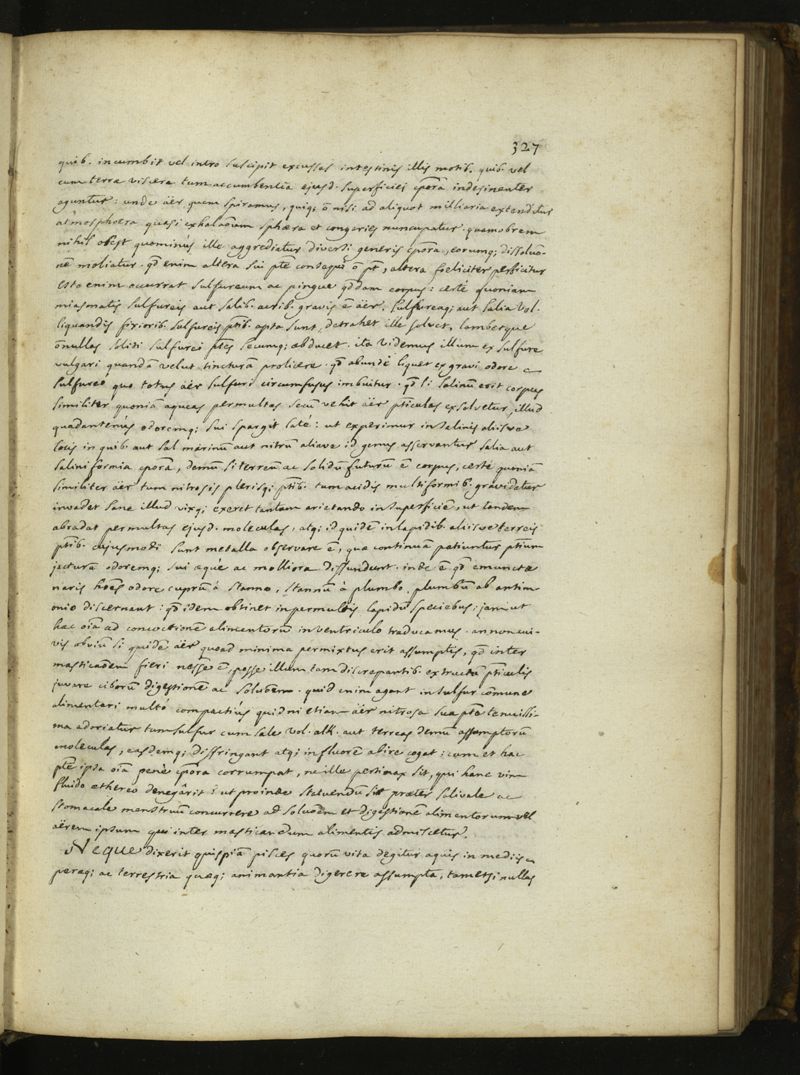 327
quib. incumbit vel intro suscipit excussas intestinis illis motib. quib. vel
cum terræ viscera tum accumbentia ejusd. superficiei cpōra indesinenter
aguntur: unde aër quem spiramus, quiq; ō nisi ad aliquot milliaria extenditur
atmosphæra quasi exhalaōum sphæra et congeries nuncupatur. quamobrem
nihil obest quominùs ille aggrediatur diversi generis cpōra, eorumq; dissoluo-
nē moliatur. qd enim altera sui pte consequi ō pt, altera fœliciter perficitur
esto enim occurrat sulfureum ac pingue qddam corpus: certè quoniam
miasmatis sulfureis aut salib. acrib. gravis ē aër, sulfureaq; aut salia vol.
liquandis fixiorib. sulfureis ptib. apta sunt, detrahet ille solvet, lambetque
ōnullas soliti sulfurei ptes secumq; abducet. ita videmus illum ex sulfure
vulgari quandā velut tincturam prolicere. qd abundè liquet ex gravi odore ac
sulfureo quo totus aër sulfuri circumfusus imbuitur. qd si salinū erit corpus
similiter quoniā aqueas permultas secū vehit aër pticulas exsolvetur illud
quadantenùs odoremq; sui sparget latè: ut experimur in salinis aliisve
locis in quib. aut sal marinū aut nitrū aliave id genus asservantur salia aut
saliniformia cpōra, demū si terreū ac solidū futurū ē corpus, certè quoniā
similiter aër tum nitrosis plerisq; ptib. tum acidis multiformib. gravidatur
invadet sane illud vixq; exeret tantam arietando in superficiē, ut tandem
abradat permultas ejusd. moleculas, atq; id quidē in lapidib. aliisve terreis
ptib. cujusmodi sunt metalla observare ē, quæ continuā patiuntur ptium
jacturā odoremq; sui æquè ac molliora diffundunt. inde ē qd emunctæ
naris hoēs odore cuprū à stanno, stannū à plumbo, plumbū ab antim-
onio discernant: qd idem obtinet in permultis lapidū speciebus. jam ut
hæc oīa ad concoctionē alimentorū in ventriculo traducamus. an non cui-
vis obviū si quidē aër quoad minima permixtus erit assumptis, qd inter
masticaōem fieri nesse ē, posse illum tam discrepantib. extructū pticulis
juvare ciborū digestionē ac soluōem. quid enim agent in sulfur cōmune
alimentari multò compactiùs quidni etiam aër nitrosa sua pte tenuissi-
ma adoriatur tum sulfur cum sale vol. alk. aut terreas demū assumptorū
moleculas, easdemq; diffringant atq; in fluorē abire cogat: cum et hac
pte ipsa oīa penè cpōra corrumpat, ne ille pertinax sit, qui hanc vim
fluido æthereo denegârit: ut proinde statuendū sit præter salivale ac
stomacale menstruū concurrere ad soluōem et digestionē alimentorum vel
aërem ipsum qui inter masticandum alimentis admiscetur.
Neque dixerit quispiā pisces quorū vita degitur aquis in mediis
peræq; ac terrestria quæq; animantia digerere assumpta, tametsi nullas